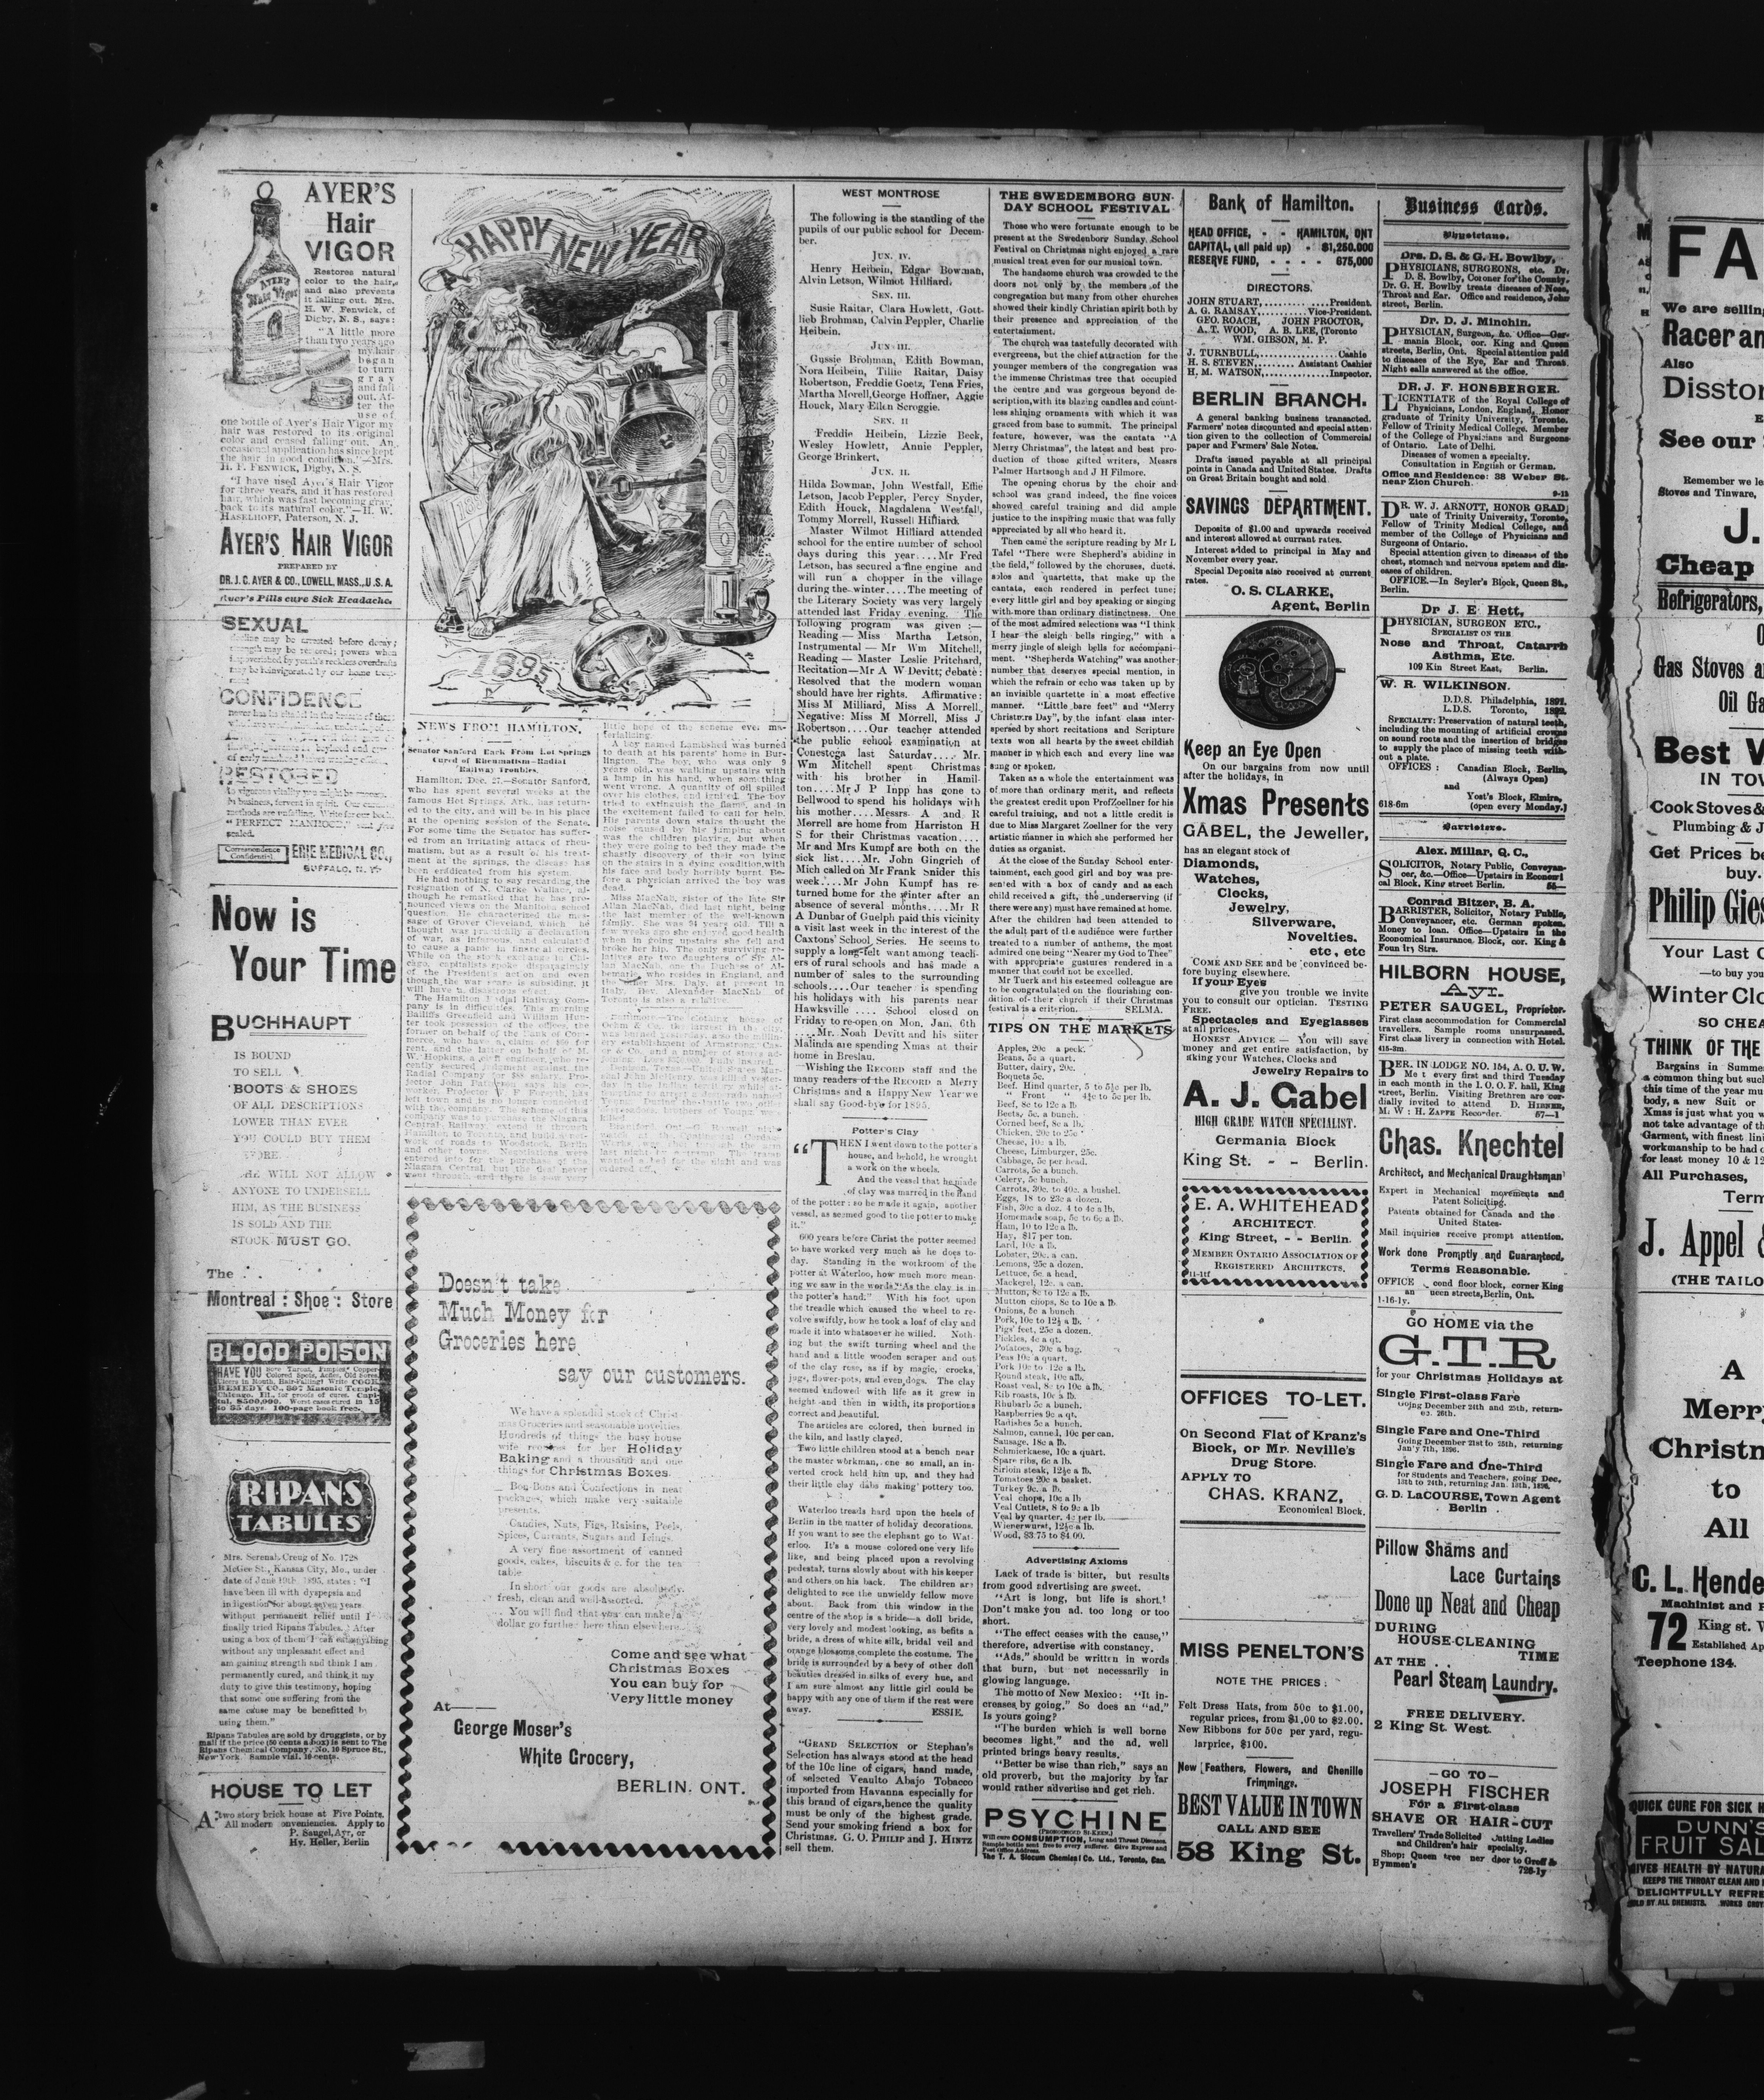 AYER'S
Hair
VIGOR
Restores natural
color to the hair,
and also prevents
it falling out. Mrs.
H. W. Fenwick, of
Digby, N. S., says:
"A little more
than two years ago
my hair
began
to turn
gray
and fall
out. Af-
ter the
use of
one bottle of Ayer's Hair Vigor my
hair was restored to its original
color and ceased falling out. An
occasional application has since kept
the hair in good condition."—Mrs.
H. F. FENWICK, Digby, N. S.
"I have used Ayer's Hair Vigor
for three years, and it has restored
hair, which was fast becoming gray,
back to its natural color."—H. W.
HASELHOFF, Paterson, N. J.
AYER'S HAIR VIGOR
PREPARED BY
DR. J. C. AYER & CO., LOWELL, MASS., U.S.A.
Ayer's Pills cure Sick Headache.
SEXUAL
decline may be arrested before decay;
CONFIDENCE
RESTORED
"PERFECT MANHOOD,"
sealed.
Correspondence
Confidential.
ERIE MEDICAL CO.,
BUFFALO, N. Y.
Now is
Your Time
BUCHHAUPT
IS BOUND
TO SELL
BOOTS & SHOES
OF ALL DESCRIPTIONS
LOWER THAN EVER
YOU COULD BUY THEM
HE WILL NOT ALLOW
ANYONE TO UNDERSELL
HIM, AS THE BUSINESS
IS SOLD AND THE
STOCK MUST GO.
The
Montreal : Shoe : Store
BLOOD POISON
HAVE YOU Sore Throat, Pimples, Copper-
Colored Spots, Aches, Old Sores,
Ulcers in Mouth, Hair-Falling! Write COOK
REMEDY CO., 307 Masonic Temple,
Chicago, Ill., for proofs of cures. Capi-
tal, $500,000. Worst cases cured in 15
to 35 days. 100-page book free.
RIPANS
TABULES
Mrs. Serenah Creug of No. 1728
McGee St., Kansas City, Mo., under
date of June 19th, 1895, states: "I
have been ill with dyspepsia and
indigestion for about seven years
without permanent relief until I
finally tried Ripans Tabules. After
using a box of them I can eat anything
without any unpleasant effect and
am gaining strength and think I am
permanently cured, and think it my
duty to give this testimony, hoping
that some one suffering from the
same cause may be benefitted by
using them."
Ripans Tabules are sold by druggists, or by
mail if the price (50 cents a box) is sent to The
Ripans Chemical Company, No. 10 Spruce St.,
New York. Sample vial, 10 cents.
HOUSE TO LET
A two story brick house at Five Points.
All modern conveniencies. Apply to
P. Saugel, Ayr, or
Hy. Heller, Berlin
A HAPPY NEW YEAR
1896
1895
NEWS FROM HAMILTON.
Senator Sanford Back From Hot Springs
Cured of Rheumatism—Radial
Railway Troubles.
Hamilton, Dec. 27.—Senator Sanford,
who has spent several weeks at the
famous Hot Springs, Ark., has return-
ed to the city, and will be in his place
at the opening session of the Senate.
For some time the Senator has suffer-
ed from an irritating attack of rheu-
matism, but as a result of his treat-
ment at the springs, the disease has
been eradicated from his system.
He had nothing to say regarding the
resignation of N. Clarke Wallace, al-
though he remarked that he has pro-
nounced views on the Manitoba school
question. He characterized the mes-
sage of Grover Cleveland, which he
thought was practically a declaration
of war, as infamous, and calculated
to cause a panic in financial circles.
While on the stock exchange in Chi-
cago, capitalists spoke disparagingly
of the President's action, and even
though the war scare is subsiding, it
will have a disastrous effect.
The Hamilton Radial Railway Com-
pany is in difficulties. This morning
Bailiffs Greenfield and William Hun-
ter took possession of the offices, the
little hope of the scheme ever ma-
terializing.
A boy named Lambshed was burned
to death at his parents' home in Bur-
lington. The boy, who was only 9
years old, was walking upstairs with
a lamp in his hand, when something
went wrong. A quantity of oil spilled
over his clothes, and ignited. The boy
tried to extinguish the flame, and in
the excitement failed to call for help.
His parents down stairs thought the
noise caused by his jumping about
was the children playing, but when
they were going to bed they made the
ghastly discovery of their son lying
on the stairs in a dying condition, with
his face and body horribly burnt. Be-
fore a physician arrived the boy was
dead.
Miss MacNab, sister of the late Sir
Allan MacNab, died last night, being
the last member of the well-known
family. She was 94 years old. Till a
few weeks ago she enjoyed good health
when in going upstairs she fell and
broke her hip. The only surviving re-
latives are two daughters of Sir Al-
lan MacNab, one the Duchess of Al-
bemarle, who resides in England, and
the other Mrs. Daly, at present in
Rev. Alexander MacNab of
Toronto is also a relative.
Doesn't take
Much Money for
Groceries here
say our customers.
We have a splendid stock of Christ-
mas Groceries and seasonable novelties
Hundreds of things the busy house
wife requires for her Holiday
Baking and a thousand and one
things for Christmas Boxes.
Bon-Bons and Confections in neat
packages, which make very suitable
presents.
Candies, Nuts, Figs, Raisins, Peels,
Spices, Currants, Sugars and Icings.
A very fine assortment of canned
goods, cakes, biscuits & c. for the tea
table
In short our goods are absolutely
fresh, clean and well-assorted.
You will find that you can make a
dollar go further here than elsewhere.
Come and see what
Christmas Boxes
You can buy for
Very little money
At——
George Moser's
White Grocery,
BERLIN. ONT.
WEST MONTROSE
The following is the standing of the
pupils of our public school for Decem-
ber.
JUN. IV.
Henry Heibein, Edgar Bowman,
Alvin Letson, Wilmot Hilliard.
SEN. III.
Susie Raitar, Clara Howlett, Gott-
lieb Brohman, Calvin Peppler, Charlie
Heibein.
JUN III.
Gussie Brohman, Edith Bowman,
Nora Heibein, Tillie Raitar, Daisy
Robertson, Freddie Goetz, Tena Fries,
Martha Morell, George Hoffner, Aggie
Houck, Mary Ellen Scroggie.
SEN. II
Freddie Heibein, Lizzie Beck,
Wesley Howlett, Annie Peppler,
George Brinkert,
JUN. II.
Hilda Bowman, John Westfall, Effie
Letson, Jacob Peppler, Percy Snyder,
Edith Houck, Magdalena Westfall,
Tommy Morrell, Russell Hilliard.
Master Wilmot Hilliard attended
school for the entire number of school
days during this year....Mr Fred
Letson, has secured a fine engine and
will run a chopper in the village
during the winter....The meeting of
the Literary Society was very largely
attended last Friday evening. The
following program was given:—
Reading — Miss Martha Letson,
Instrumental — Mr Wm Mitchell,
Reading — Master Leslie Pritchard,
Recitation—Mr A W Devitt; debate:
Resolved that the modern woman
should have her rights. Affirmative:
Miss M Milliard, Miss A Morrell.
Negative: Miss M Morrell, Miss J
Robertson....Our teacher attended
the public school examination at
Conestoga last Saturday.... Mr.
Wm Mitchell spent Christmas
with his brother in Hamil-
ton....Mr J P Inpp has gone to
Bellwood to spend his holidays with
his mother....Messrs. A and R
Morrell are home from Harriston H
S for their Christmas vacation....
Mr and Mrs Kumpf are both on the
sick list....Mr. John Gingrich of
Mich called on Mr Frank Snider this
week....Mr John Kumpf has re-
turned home for the winter after an
absence of several months....Mr R
A Dunbar of Guelph paid this vicinity
a visit last week in the interest of the
Caxtons' School Series. He seems to
supply a long-felt want among teach-
ers of rural schools and has made a
number of sales to the surrounding
schools....Our teacher is spending
his holidays with his parents near
Hawksville .... School closed on
Friday to re-open on Mon. Jan. 6th
....Mr. Noah Devitt and his siiter
Malinda are spending Xmas at their
home in Breslau.
—Wishing the RECORD staff and the
many readers of the RECORD a Merry
Christmas and a Happy New Year we
shall say Good-bye for 1895.
Potter's Clay
"THEN I went down to the potter's
house, and behold, he wrought
a work on the wheels.
And the vessel that he made
of clay was marred in the hand
of the potter: so he made it again, another
vessel, as seemed good to the potter to make
it."
600 years before Christ the potter seemed
to have worked very much as he does to-
day. Standing in the workroom of the
potter at Waterloo, how much more mean-
ing we saw in the words "As the clay is in
the potter's hand." With his foot upon
the treadle which caused the wheel to re-
volve swiftly, how he took a loaf of clay and
made it into whatsoever he willed. Noth-
ing but the swift turning wheel and the
hand and a little wooden scraper and out
of the clay rose, as if by magic, crocks,
jugs, flower-pots, and even dogs. The clay
seemed endowed with life as it grew in
height and then in width, its proportions
correct and beautiful.
The articles are colored, then burned in
the kiln, and lastly clayed.
Two little children stood at a bench near
the master workman, one so small, an in-
verted crock held him up, and they had
their little clay dabs making pottery too.
Waterloo treads hard upon the heels of
Berlin in the matter of holiday decorations.
If you want to see the elephant go to Wat-
erloo. It's a mouse colored one very life
like, and being placed upon a revolving
pedestal, turns slowly about with his keeper
and others on his back. The children are
delighted to see the unwieldy fellow move
about. Back from this window in the
centre of the shop is a bride—a doll bride,
very lovely and modest looking, as befits a
bride, a dress of white silk, bridal veil and
orange blossoms complete the costume. The
bride is surrounded by a bevy of other doll
beauties dressed in silks of every hue, and
I am sure almost any little girl could be
happy with any one of them if the rest were
away. ESSIE.
"GRAND SELECTION or Stephan's
Selection has always stood at the head
of the 10c line of cigars, hand made,
of selected Veaulto Abajo Tobacco
imported from Havanna especially for
this brand of cigars, hence the quality
must be only of the highest grade.
Send your smoking friend a box for
Christmas. G. O. PHILIP and J. HINTZ
sell them.
THE SWEDEMBORG SUN-
DAY SCHOOL FESTIVAL
Those who were fortunate enough to be
present at the Swedenborg Sunday School
Festival on Christmas night enjoyed a rare
musical treat even for our musical town.
The handsome church was crowded to the
doors not only by the members of the
congregation but many from other churches
showed their kindly Christian spirit both by
their presence and appreciation of the
entertainment.
The church was tastefully decorated with
evergreens, but the chief attraction for the
younger members of the congregation was
the immense Christmas tree that occupied
the centre and was gorgeous beyond de-
scription, with its blazing candles and count-
less shining ornaments with which it was
graced from base to summit. The principal
feature, however, was the cantata "A
Merry Christmas", the latest and best pro-
duction of those gifted writers, Messrs
Palmer Hartsough and J H Filmore.
The opening chorus by the choir and
school was grand indeed, the fine voices
showed careful training and did ample
justice to the inspiring music that was fully
appreciated by all who heard it.
Then came the scripture reading by Mr L
Tafel "There were Shepherd's abiding in
the field," followed by the choruses, duets.
solos and quartetts, that make up the
cantata, each rendered in perfect tune;
every little girl and boy speaking or singing
with more than ordinary distinctness. One
of the most admired selections was "I think
I hear the sleigh bells ringing," with a
merry jingle of sleigh bells for accompani-
ment. "Shepherds Watching" was another
number that deserves special mention, in
which the refrain or echo was taken up by
an invisible quartette in a most effective
manner. "Little bare feet" and "Merry
Christmrs Day", by the infant class inter-
spersed by short recitations and Scripture
texts won all hearts by the sweet childish
manner in which each and every line was
sung or spoken.
Taken as a whole the entertainment was
of more than ordinary merit, and reflects
the greatest credit upon Prof Zoellner for his
careful training, and not a little credit is
due to Miss Margaret Zoellner for the very
artistic manner in which she performed her
duties as organist.
At the close of the Sunday School enter-
tainment, each good girl and boy was pre-
sented with a box of candy and as each
child received a gift, the underserving (if
there were any) must have remained at home.
After the children had been attended to
the adult part of the audience were further
treated to a number of anthems, the most
admired one being "Nearer my God to Thee"
with appropriate gustures rendered in a
manner that could not be excelled.
Mr Tuerk and his esteemed colleague are
to be congratulated on the flourishing con-
dition of their church if their Christmas
festival is a criterion. SELMA.
TIPS ON THE MARKETS
Apples, 20c a peck.
Beans, 5c a quart.
Butter, dairy, 20c.
Boquets 5c.
Beef. Hind quarter, 5 to 5½c per lb.
" Front " 4½c to 5c per lb.
Beef, 8c to 12c a lb
Beets, 5c a bunch.
Corned beef, 8c a lb.
Chicken, 20c to 25c
Cheese, 10c a lb.
Cheese, Limburger, 25c.
Cabbage, 5c per head.
Carrots, 5c a bunch.
Celery, 5c bunch.
Carrots, 30c. to 40c. a bushel.
Eggs, 18 to 23c a dozen.
Fish, 30c a doz. 4 to 4c a lb,
Homemade soap, 5c to 6c a lb.
Ham, 10 to 12c a lb.
Hay, $17 per ton.
Lard, 10c a lb.
Lobster, 20c. a can.
Lemons, 25c a dozen.
Lettuce, 6c. a head,
Mackerel, 12c. a can.
Mutton, 8c to 12c a lb.
Mutton chops, 8c to 10c a lb.
Onions, 5c a bunch
Pork, 10c to 12½ a lb.
Pigs' feet, 25c a dozen.
Pickles, 4c a qt.
Potatoes, 30c a bag.
Peas 10c a quart.
Pork 10c to 12c a lb.
Round steak, 10c a lb.
Roast veal, 8c to 10c a lb.
Rib roasts, 10c a lb.
Rhubarb 5c a bunch.
Raspberries 9c a qt.
Radishes 5c a bunch.
Salmon, canned, 10c per can.
Sausage. 18c a lb.
Schmierkaese, 10c a quart.
Spare ribs, 6c a lb.
Sirloin steak, 12½c a lb.
Tomatoes 20c a basket.
Turkey 9c. a lb.
Veal chops, 10c a lb
Veal Cutlets, 8 to 9c a lb
Veal by quarter. 4c per lb.
Wienerwurst, 12½c a lb.
Wood, $3.75 to $4.00.
Advertising Axioms
Lack of trade is bitter, but results
from good advertising are sweet.
"Art is long, but life is short.'
Don't make you ad. too long or too
short.
"The effect ceases with the cause,"
therefore, advertise with constancy.
"Ads." should be written in words
that burn, but not necessarily in
glowing language.
The motto of New Mexico: "It in-
creases by going." So does an "ad."
Is yours going?
"The burden which is well borne
becomes light," and the ad. well
printed brings heavy results.
"Better be wise than rich," says an
old proverb, but the majority by far
would rather advertise and get rich.
PSYCHINE
(PRONOUNCED SI-KEEN.)
Will cure CONSUMPTION, Lung and Throat Diseases.
Sample bottle sent free to every sufferer. Give Express and
Post Office Address.
The T. A. Slocum Chemical Co. Ltd., Toronto, Can.
Bank of Hamilton.
HEAD OFFICE, - - HAMILTON, ONT
CAPITAL, (all paid up) - $1,250.000
RESERVE FUND, - - - - 675,000
DIRECTORS.
JOHN STUART,............President.
A. G. RAMSAY,.........Vice-President.
GEO. ROACH, JOHN PROCTOR,
A. T. WOOD, A. B. LEE, (Toronto
WM. GIBSON, M. P.
J. TURNBULL,................Cashie
H. S. STEVEN,........ Assistant Cashier
H. M. WATSON,..............Inspector.
BERLIN BRANCH.
A general banking business transacted.
Farmers' notes discounted and special atten-
tion given to the collection of Commercial
paper and Farmers' Sale Notes.
Drafts issued payable at all principal
points in Canada and United States. Drafts
on Great Britain bought and sold
SAVINGS DEPARTMENT.
Deposits of $1.00 and upwards received
and interest allowed at currant rates.
Interest added to principal in May and
November every year.
Special Deposits also received at current
rates.
O. S. CLARKE,
Agent, Berlin
Keep an Eye Open
On our bargains from now until
after the holidays, in
Xmas Presents
GABEL, the Jeweller,
has an elegant stock of
Diamonds,
Watches,
Clocks,
Jewelry,
Silverware,
Novelties.
etc, etc
COME AND SEE and be convinced be-
fore buying elsewhere.
If your Eyes
give you trouble we invite
you to consult our optician. TESTING
FREE.
Spectacles and Eyeglasses
at all prices.
HONEST ADVICE — You will save
money and get entire satisfaction, by
taking your Watches, Clocks and
Jewelry Repairs to
A. J. Gabel
HIGH GRADE WATCH SPECIALIST.
Germania Block
King St. - - Berlin.
E. A. WHITEHEAD
ARCHITECT.
King Street, - - Berlin.
MEMBER ONTARIO ASSOCIATION OF
REGISTERED ARCHITECTS.
11-1tf
OFFICES TO-LET.
On Second Flat of Kranz's
Block, or Mr. Neville's
Drug Store.
APPLY TO
CHAS. KRANZ,
Economical Block.
MISS PENELTON'S
NOTE THE PRICES:
Felt Dress Hats, from 50c to $1.00,
regular prices, from $1.00 to $2.00.
New Ribbons for 50c per yard, regu-
larprice, $100.
New Feathers, Flowers, and Chenille
Trimmings.
BEST VALUE IN TOWN
CALL AND SEE
58 King St.
Business Cards.
Physicians.
Drs. D. S. & G. H. Bowlby,
PHYSICIANS, SURGEONS, etc. Dr.
D. S. Bowlby, Coroner for the County.
Dr. G. H. Bowlby treats diseases of Nose,
Throat and Ear. Office and residence, John
street, Berlin.
Dr. D. J. Minchin.
PHYSICIAN, Surgeon, &c. Office—Ger-
mania Block, cor. King and Queen
streets, Berlin, Ont. Special attention paid
to diseases of the Eye, Ear and Throat.
Night calls answered at the office.
DR. J. F. HONSBERGER.
LICENTIATE of the Royal College of
Physicians, London, England, Honor
graduate of Trinity University, Toronto.
Fellow of Trinity Medical College. Member
of the College of Physicians and Surgeons
of Ontario. Late of Delhi.
Diseases of women a specialty.
Consultation in English or German.
Office and Residence: 38 Weber St.
near Zion Church.
9-13
DR. W. J. ARNOTT, HONOR GRAD;
uate of Trinity University, Toronto,
Fellow of Trinity Medical College, and
member of the College of Physicians and
Surgeons of Ontario.
Special attention given to diseases of the
chest, stomach and nervous system and dis-
eases of children.
OFFICE.—In Seyler's Block, Queen St.,
Berlin.
Dr J. E Hett,
PHYSICIAN, SURGEON ETC.,
SPECIALIST ON THE
Nose and Throat, Catarrh
Asthma, Etc.
109 Kin Street East, Berlin.
W. R. WILKINSON.
D.D.S. Philadelphia, 1891.
L.D.S. Toronto, 1892.
SPECIALTY: Preservation of natural teeth,
including the mounting of artificial crowns
on sound roots and the insertion of bridges
to supply the place of missing teeth with-
out a plate.
OFFICES: Canadian Block, Berlin,
(Always Open)
and
Yost's Block, Elmira,
618-6m (open every Monday.)
Barristers.
Alex. Millar, Q. C.,
SOLICITOR, Notary Public, Conveyan-
cer, &c.—Office—Upstairs in Economi
cal Block, King street Berlin. 55—
Conrad Bitzer, B. A.
BARRISTER, Solicitor, Notary Public,
Conveyancer, etc. German spoken.
Money to loan. Office—Upstairs in the
Economical Insurance Block, cor. King &
Foun lry Strs.
HILBORN HOUSE,
Ayr.
PETER SAUGEL, Proprietor.
First class accommodation for Commercial
travellers. Sample rooms unsurpassed.
First class livery in connection with Hotel.
415-3m.
BER. IN LODGE NO. 154, A. O. U. W.
Me t every first and third Tuesday
in each month in the I. O. O. F. hall, King
street, Berlin. Visiting Brethren are cor-
dially invited to attend D. HIBNER,
M. W: H. ZAPFE Recorder. 57—1
Chas. Knechtel
Architect, and Mechanical Draughtsman
Expert in Mechanical movements and
Patent Soliciting.
Patents obtained for Canada and the
United States-
Mail inquiries receive prompt attention.
Work done Promptly and Guaranteed.
Terms Reasonable.
OFFICE cond floor block, corner King
an ueen streets, Berlin, Ont.
1-16-1y.
GO HOME via the
G.T.R
for your Christmas Holidays at
Single First-class Fare
Going December 24th and 25th, return-
26th.
Single Fare and One-Third
Going December 21st to 25th, returning
Jan'y 7th, 1896.
Single Fare and One-Third
for Students and Teachers, going Dec.
13th to 24th, returning Jan. 18th, 1896.
G. D. LaCOURSE, Town Agent
Berlin
Pillow Shams and
Lace Curtains
Done up Neat and Cheap
DURING
HOUSE-CLEANING
TIME
AT THE . .
Pearl Steam Laundry.
FREE DELIVERY.
2 King St. West.
—GO TO—
JOSEPH FISCHER
For a First-class
SHAVE OR HAIR-CUT
Travellers' Trade Solicited Cutting Ladies
and Children's hair specialty.
Shop: Queen tree ner door to Groff &
Hymmen's 726-1y
FA
We are selling
Racer an
Also
Disston
See our
Remember we
Stoves and Tinware,
J.
Cheap
Refrigerators,
Gas Stoves a
Oil Ga
Best V
IN TOV
Cook Stoves &
Plumbing & J
Get Prices be
buy.
Philip Gies
Your Last C
—to buy you
Winter Clo
SO CHEA
THINK OF THE
Bargains in Summe
a common thing but such
this time of the year mu
body, a new Suit or
Xmas is just what you w
not take advantage of th
Garment, with finest lini
workmanship to be had o
for least money 10 & 12
All Purchases,
Term
J. Appel &
(THE TAILO
A
Merr
Christn
to
All
C. L. Hende
Machinist and F
72 King st. W
Established Ap
Teephone 134.
QUICK CURE FOR SICK H
DUNN'S
FRUIT SAL
GIVES HEALTH BY NATURA
KEEPS THE THROAT CLEAN AND
DELIGHTFULLY REFRE
SOLD BY ALL CHEMISTS. WORKS CROY